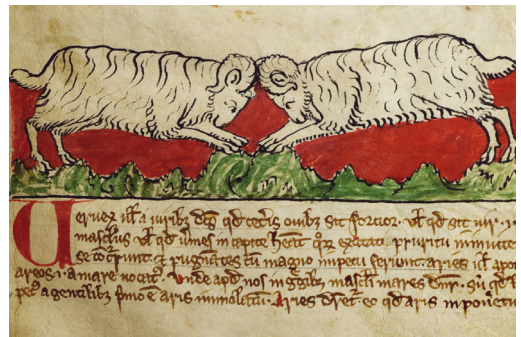 Ueruex ul' a uirib; dc̄s qd̄ cet̄is ouib; sit fortior. ul' qd̄ sit uir. i.
masculus ul' qd̄ u͛mes in capite h̄eat q̄r excitati pruritu inuice
se c̄cutiunt. et pugnantes cū magno impetu feriunt. aries ul' apo
areos. i. a marte uocat͛. Unde apd̄ nos in g̃gib; masc̄li mares dn̄r. Siū qd̄ h
pec͛ a gentilib; p̄mo in aris immolatū. Aries dr̄ et eo qd̄ aris inponetu